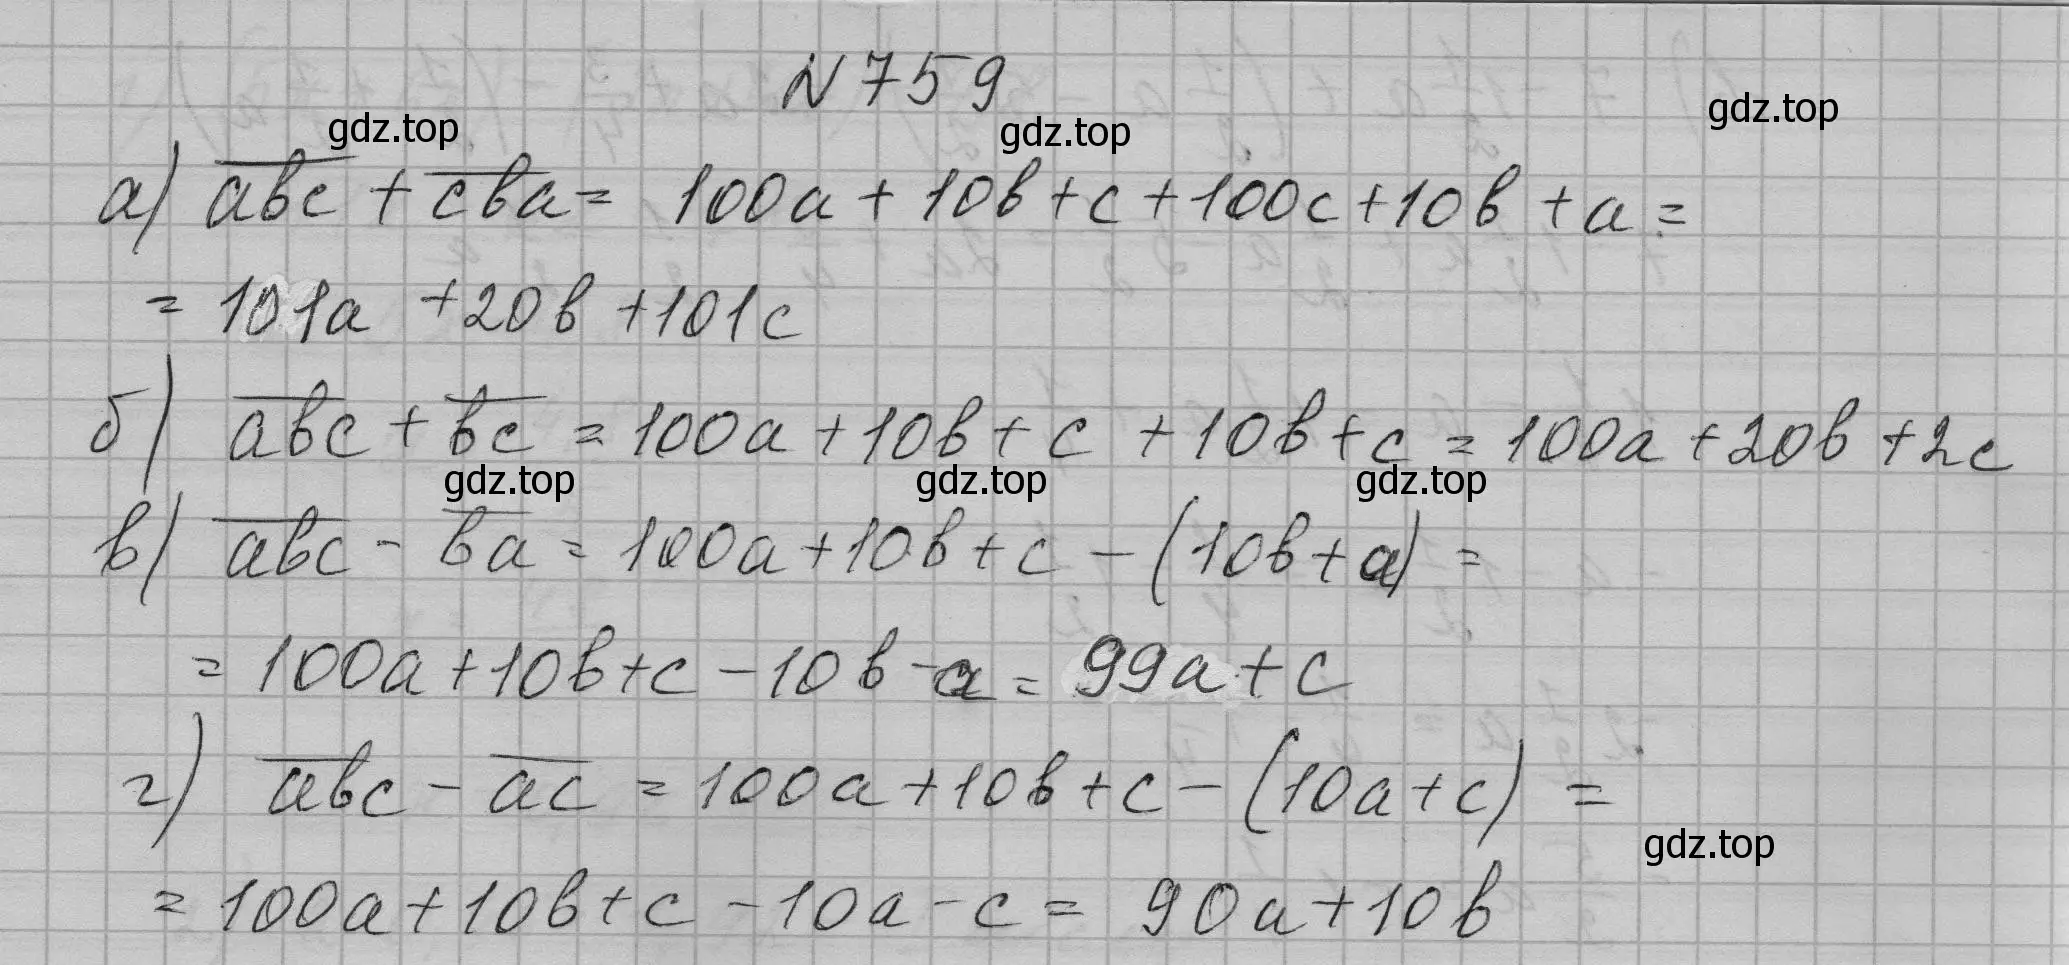 N 759
gdz.top gdz.top gdz.top
а) a̅b̅c̅ + c̅b̅a̅ = 100a + 10b + c + 100c + 10b + a =
= 101a + 20b + 101c
б) a̅b̅c̅ + b̅c̅ = 100a + 10b + c + 10b + c = 100a + 20b + 2c
gdz.top gdz.top gdz.top
в) a̅b̅c̅ - b̅a̅ = 100a + 10b + c - (10b + a) =
= 100a + 10b + c - 10b - a = 99a + c
г) a̅b̅c̅ - a̅c̅ = 100a + 10b + c - (10a + c) =
gdz.top
= 100a + 10b + c - 10a - c = 90a + 10b